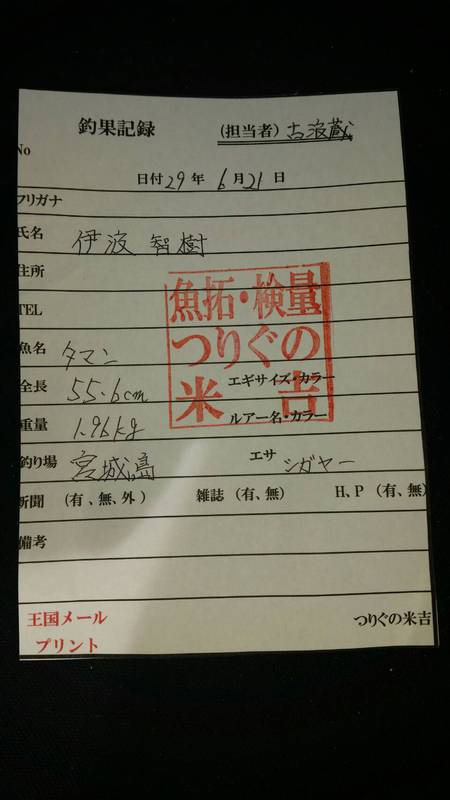 釣果記録 (担当者) 古波蔵
No
日付 29年 6月21日
フリガナ
氏名 伊波 智樹
住所
TEL
魚拓・検量
つりぐの
米吉
魚名 タマン
全長 55.6cm エギサイズ・カラー
重量 1.96kg ルアー名・カラー
釣り場 宮城島 エサ シガヤー
新聞 (有、無、外) 雑誌 (有、無) H、P (有、無)
備考
王国メール つりぐの米吉
プリント